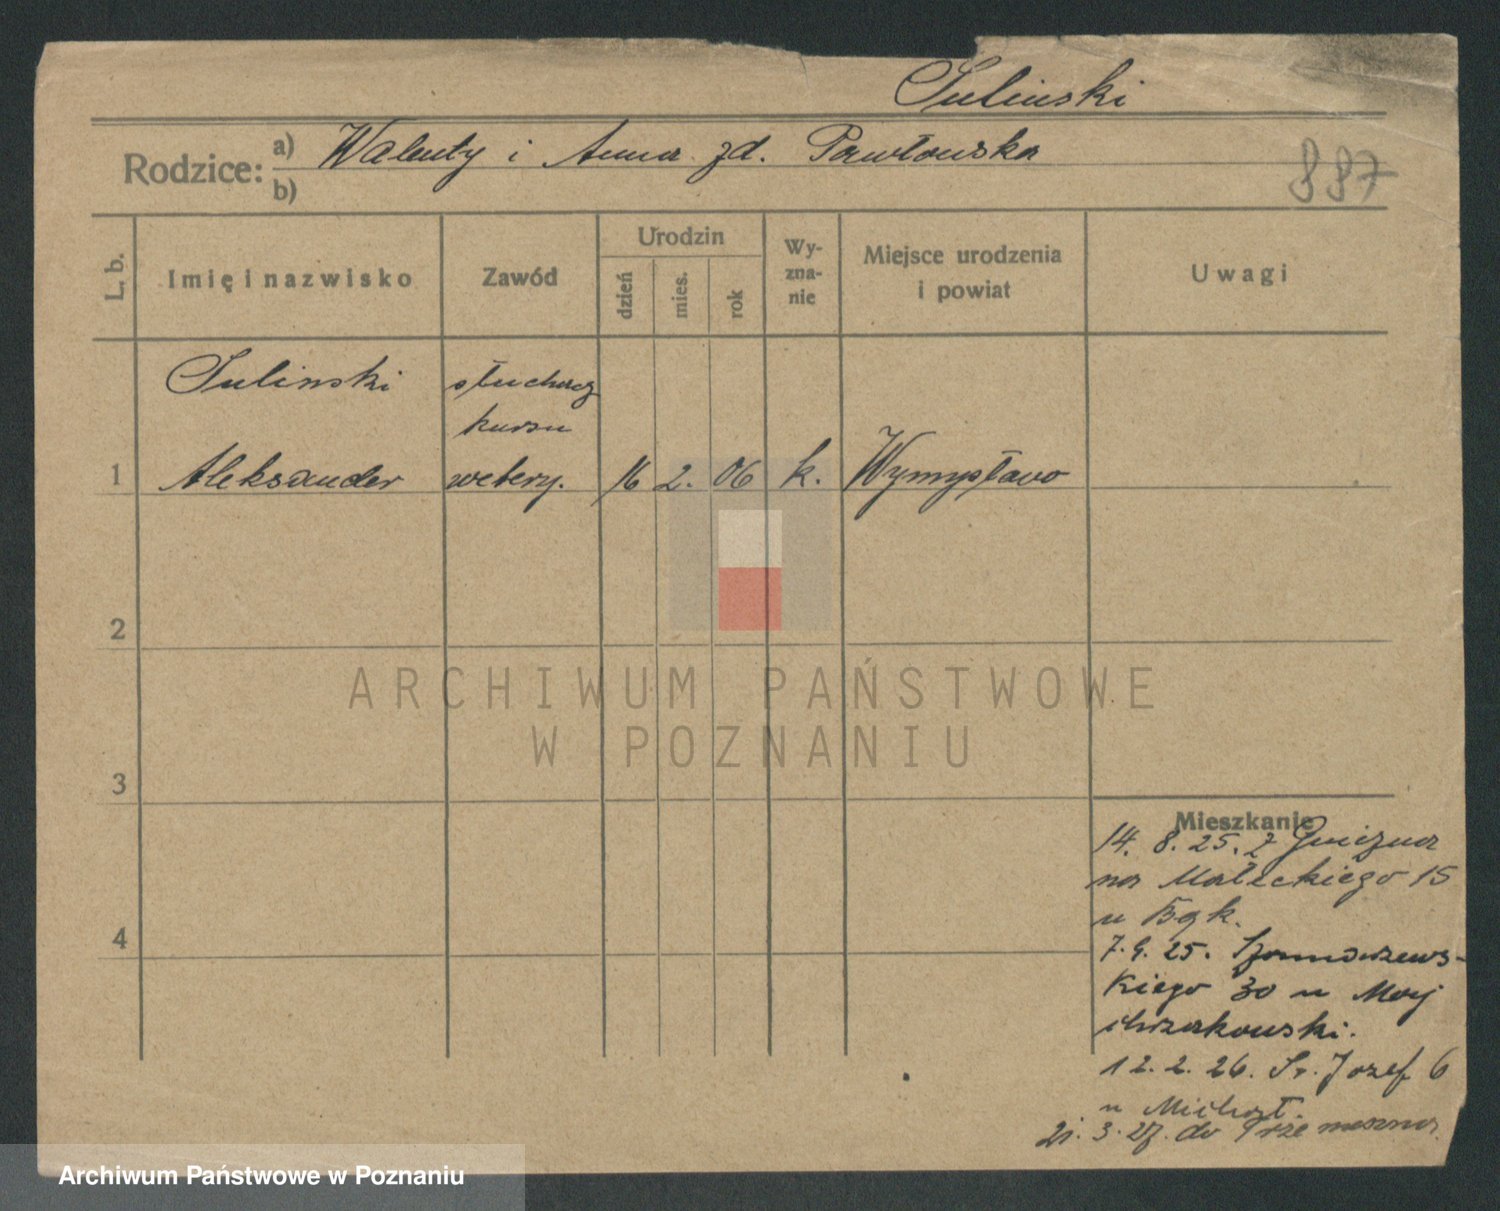 Suliński
Rodzice: a) Walenty i Anna zd. Pawłowska
b)
887
L. b.
Imię i nazwisko
Zawód
Urodzin
dzień
mies.
rok
Wy-
zna-
nie
Miejsce urodzenia
i powiat
Uwagi
Sulinski słuchacz
kursu
1 Aleksander wetery. 16 2. 06 k. Wymysławo
2
3
4
ARCHIWUM PAŃSTWOWE
W POZNANIU
Mieszkanie
14. 8. 25. z Gniezna
na Małeckiego 15
u Bąk.
7. 9. 25. Szamarzews-
kiego 30 u
12. 2. 26. Św. Józef 6
u Michał.
21. 3. 27. do Trzemeszna.
Archiwum Państwowe w Poznaniu